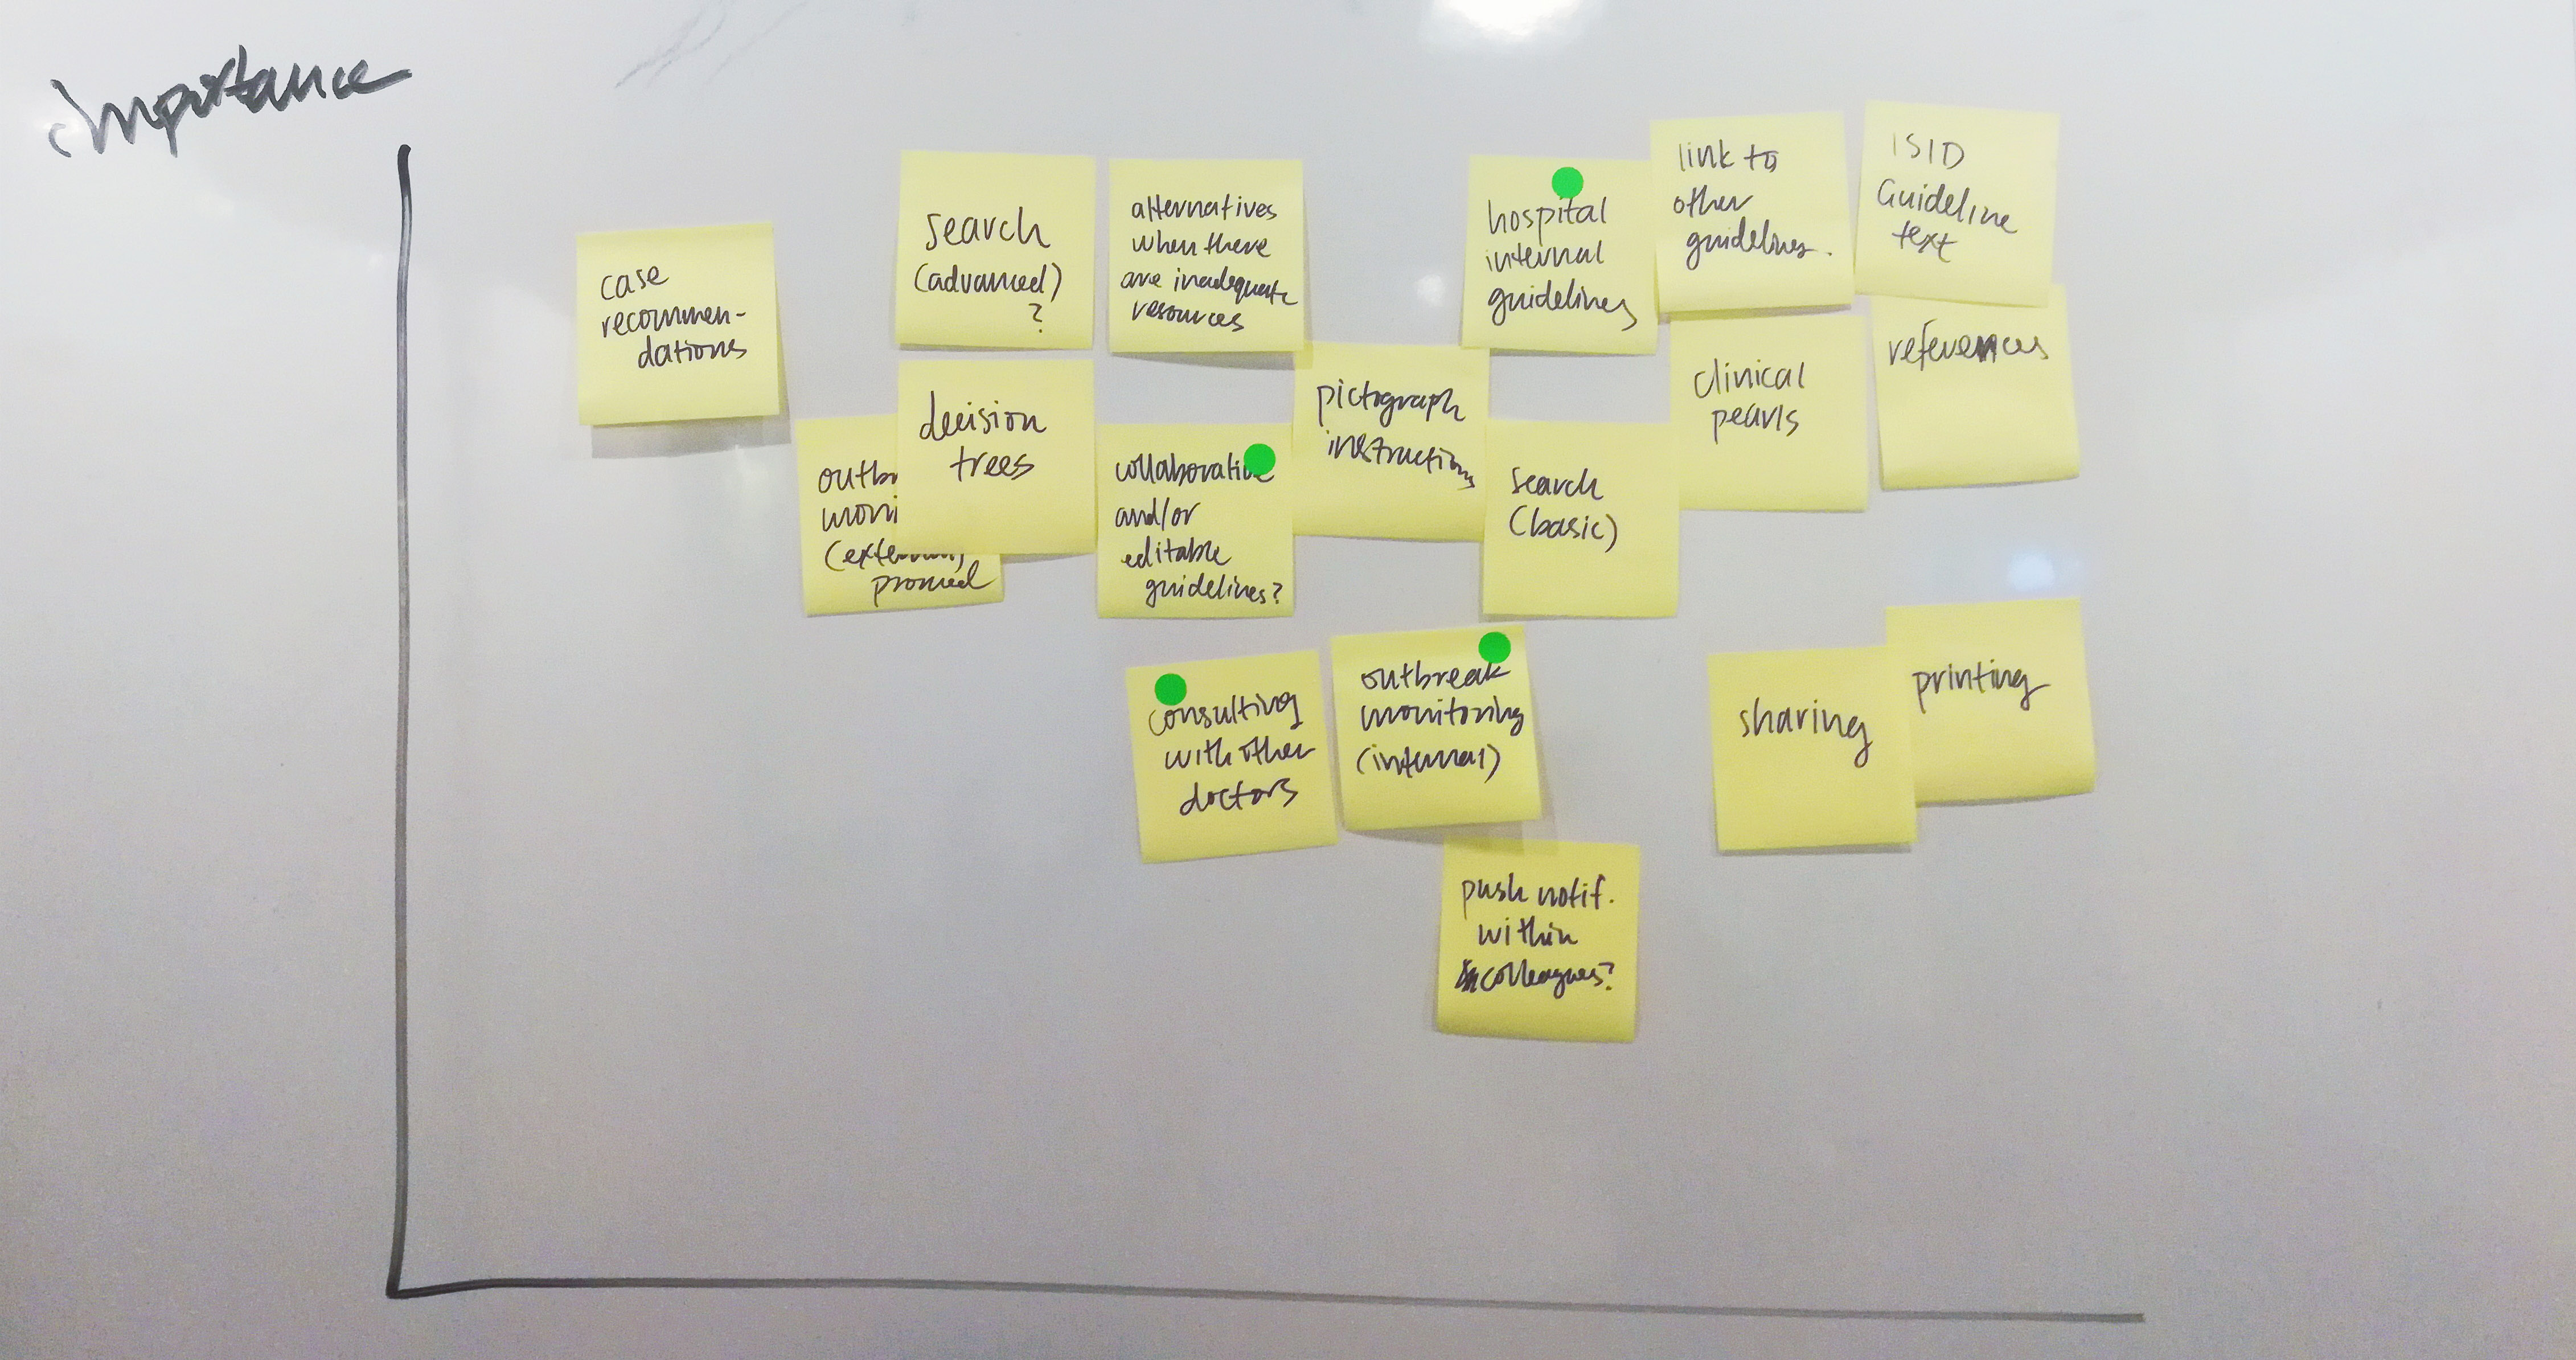 importance
case
recommen-
dations
search
(advanced)
?
alternatives
when there
are inadequate
resources
hospital
internal
guidelines
link to
other
guidelines.
ISID
Guideline
text
outbr
moni
(external)
promed
decision
trees
collaborative
and/or
editable
guidelines?
pictograph
instructions
search
(basic)
clinical
pearls
references
consulting
with other
doctors
outbreak
monitoring
(internal)
sharing
printing
push notif.
within
colleagues?